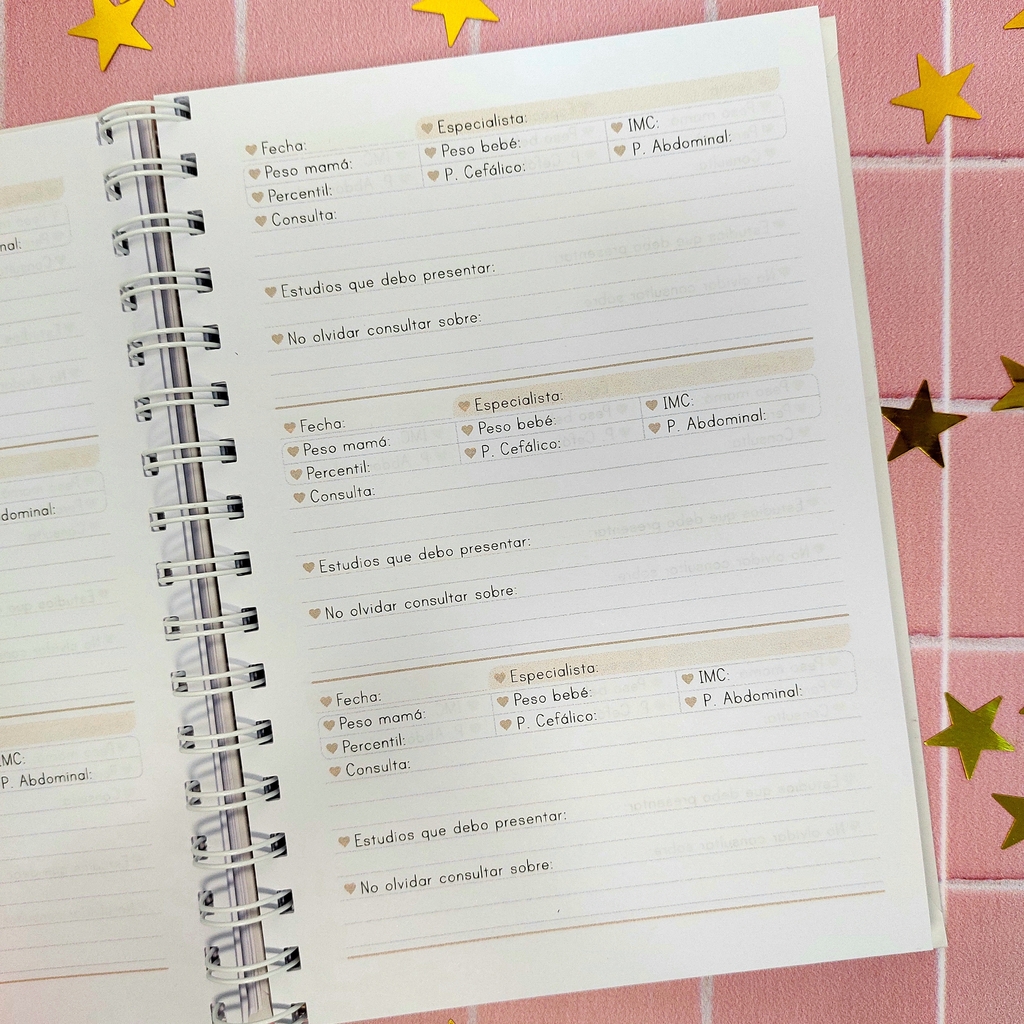 nal:
dominal:
IMC:
P. Abdominal:
Fecha: Especialista:
Peso mamá: Peso bebé: IMC:
Percentil: P. Cefálico: P. Abdominal:
Consulta:
Estudios que debo presentar:
No olvidar consultar sobre:
Fecha: Especialista:
Peso mamá: Peso bebé: IMC:
Percentil: P. Cefálico: P. Abdominal:
Consulta:
Estudios que debo presentar:
No olvidar consultar sobre:
Fecha: Especialista:
Peso mamá: Peso bebé: IMC:
Percentil: P. Cefálico: P. Abdominal:
Consulta:
Estudios que debo presentar:
No olvidar consultar sobre: